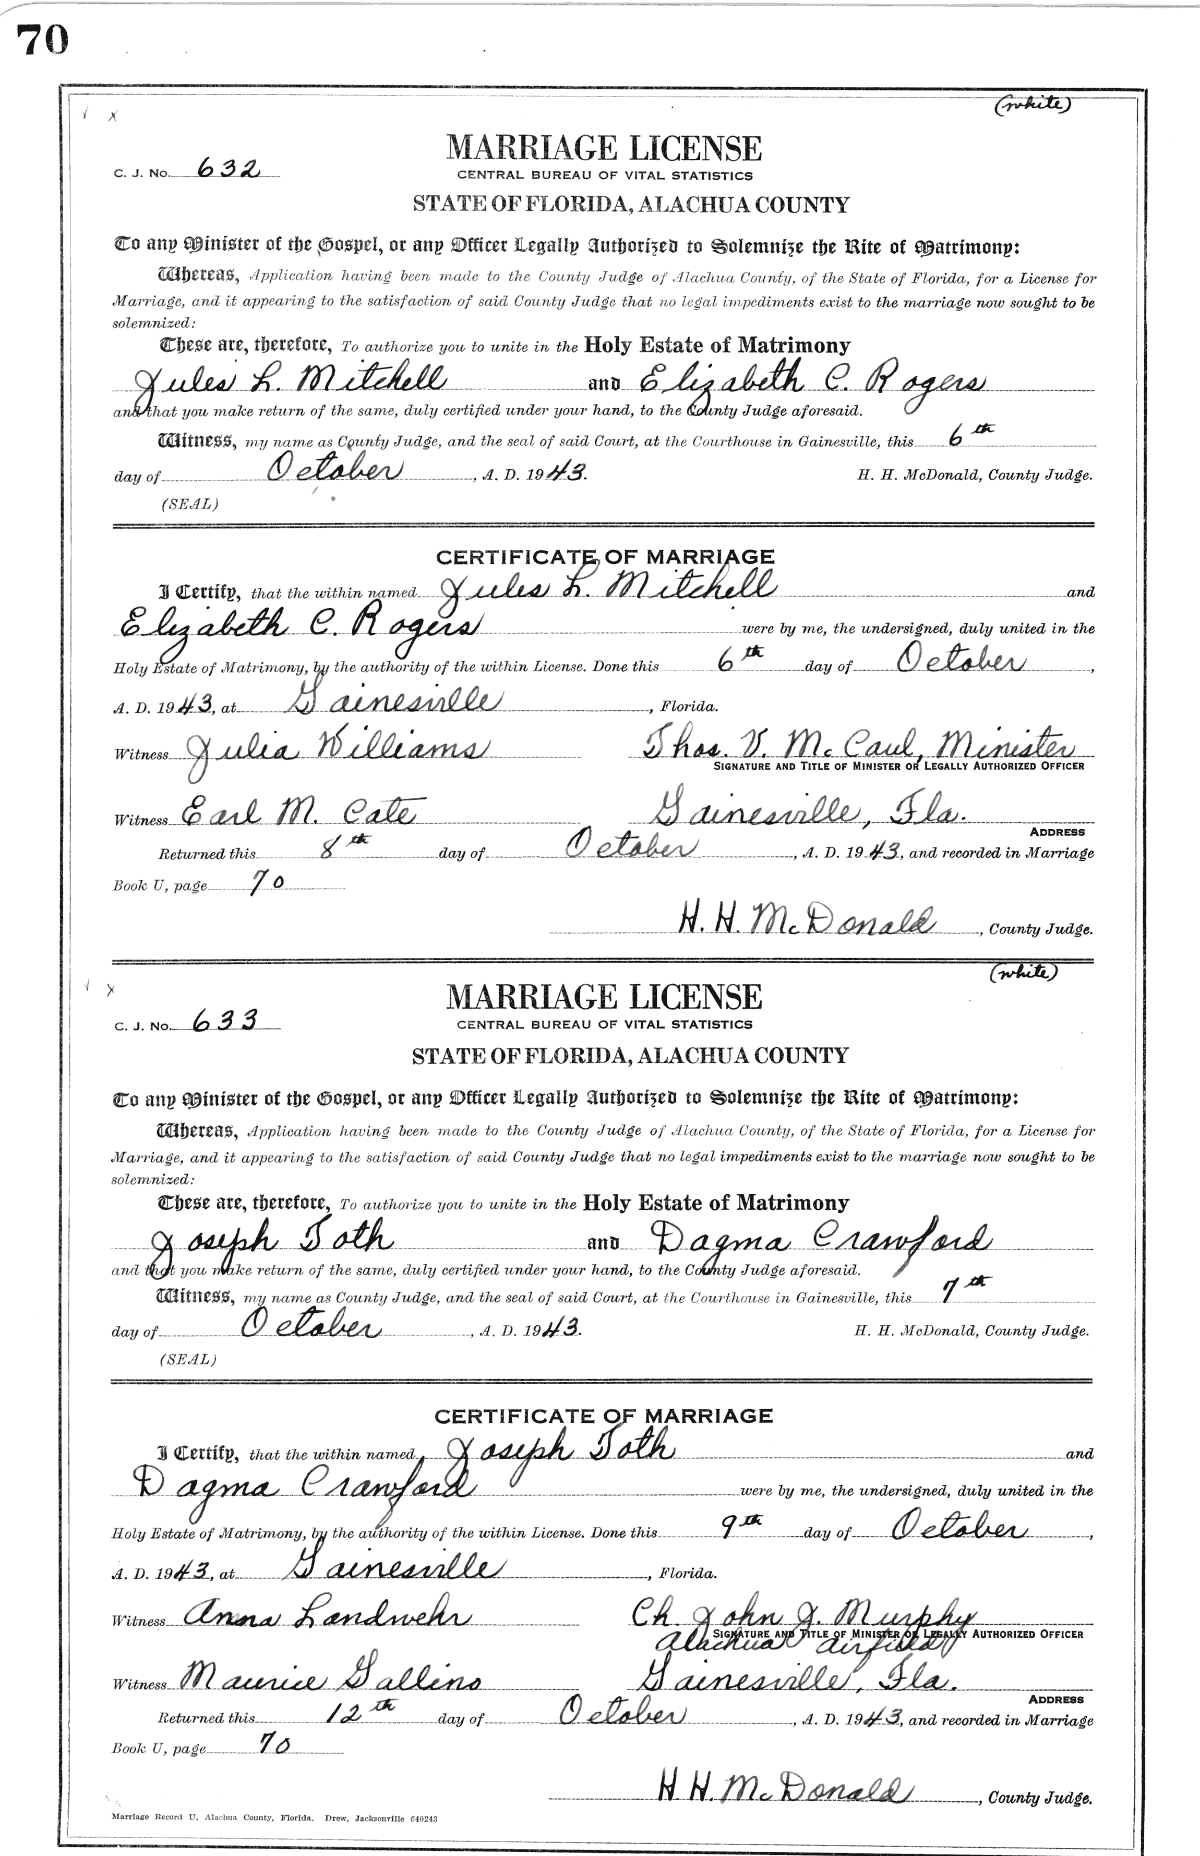 70
(white)
MARRIAGE LICENSE
C. J. No. 632
CENTRAL BUREAU OF VITAL STATISTICS
STATE OF FLORIDA, ALACHUA COUNTY
To any Minister of the Gospel, or any Officer Legally Authorized to Solemnize the Rite of Matrimony:
Whereas, Application having been made to the County Judge of Alachua County, of the State of Florida, for a License for
Marriage, and it appearing to the satisfaction of said County Judge that no legal impediments exist to the marriage now sought to be
solemnized:
These are, therefore, To authorize you to unite in the Holy Estate of Matrimony
Jules L. Mitchell and Elizabeth C. Rogers
and that you make return of the same, duly certified under your hand, to the County Judge aforesaid.
Witness, my name as County Judge, and the seal of said Court, at the Courthouse in Gainesville, this 6th
day of October, A. D. 1943. H. H. McDonald, County Judge.
(SEAL)
CERTIFICATE OF MARRIAGE
I Certify, that the within named Jules L. Mitchell and
Elizabeth C. Rogers were by me, the undersigned, duly united in the
Holy Estate of Matrimony, by the authority of the within License. Done this 6th day of October,
A. D. 1943, at Gainesville, Florida.
Witness Julia Williams Thos. V. McCaul, Minister
SIGNATURE AND TITLE OF MINISTER OR LEGALLY AUTHORIZED OFFICER
Witness Earl M. Cate Gainesville, Fla.
ADDRESS
Returned this 8th day of October, A. D. 1943, and recorded in Marriage
Book U, page 70
H. H. McDonald, County Judge.
(white)
MARRIAGE LICENSE
C. J. No. 633
CENTRAL BUREAU OF VITAL STATISTICS
STATE OF FLORIDA, ALACHUA COUNTY
To any Minister of the Gospel, or any Officer Legally Authorized to Solemnize the Rite of Matrimony:
Whereas, Application having been made to the County Judge of Alachua County, of the State of Florida, for a License for
Marriage, and it appearing to the satisfaction of said County Judge that no legal impediments exist to the marriage now sought to be
solemnized:
These are, therefore, To authorize you to unite in the Holy Estate of Matrimony
Joseph Toth and Dagma Crawford
and that you make return of the same, duly certified under your hand, to the County Judge aforesaid.
Witness, my name as County Judge, and the seal of said Court, at the Courthouse in Gainesville, this 7th
day of October, A. D. 1943. H. H. McDonald, County Judge.
(SEAL)
CERTIFICATE OF MARRIAGE
I Certify, that the within named Joseph Toth and
Dagma Crawford were by me, the undersigned, duly united in the
Holy Estate of Matrimony, by the authority of the within License. Done this 9th day of October,
A. D. 1943, at Gainesville, Florida.
Witness Anna Landwehr Ch. John J. Murphy
SIGNATURE AND TITLE OF MINISTER OR LEGALLY AUTHORIZED OFFICER
Alachua airfield
Witness Maurice Gallino Gainesville, Fla.
ADDRESS
Returned this 12th day of October, A. D. 1943, and recorded in Marriage
Book U, page 70
H. H. McDonald, County Judge.
Marriage Record U, Alachua County, Florida. Drew, Jacksonville 640243